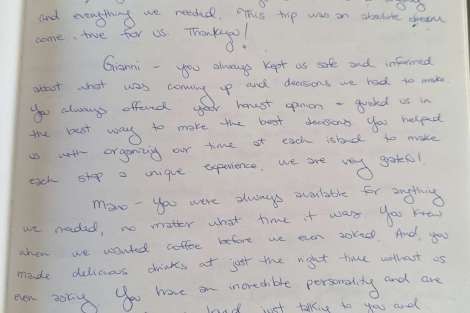 and everything we needed. This trip was an absolute dream
come true for us. Thankyou!
Gianni - you always kept us safe and informed
about what was coming up and decisions we had to make.
You always offered your honest opinion + guided us in
the best way to make the best decisions. You helped
us with organizing our time at each island to make
each stop a unique experience, we are very grateful!
- You were always available for anything
we needed, no matter what time it was. You knew
when we wanted coffee before we even asked. And, you
made delicious drinks at just the right time without us
even asking. You have an incredible personality and are
just talking to you and